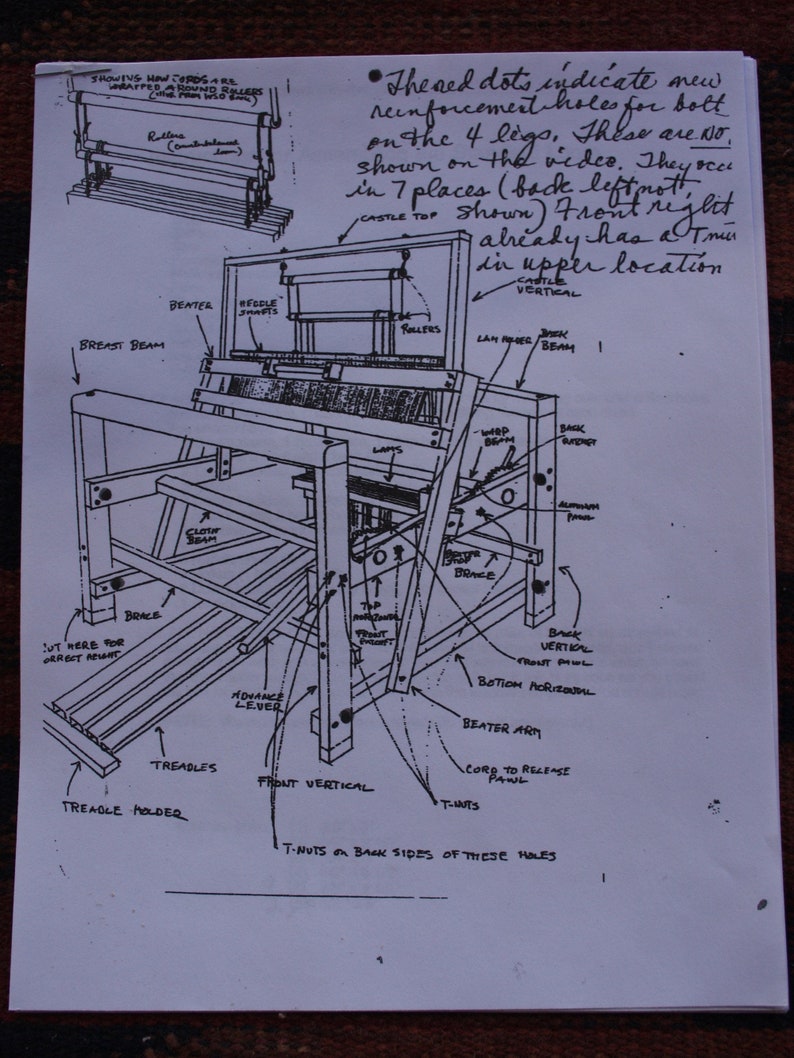 SHOWING HOW CORDS ARE
WRAPPED AROUND ROLLERS
Rollers
(Counterbalanced
loom)
• The red dots indicate new
reinforcement holes for bolt
on the 4 legs. These are NO
shown on the video. They occu
in 7 places (back left not
shown) Front right
already has a T nu
in upper location
CASTLE TOP
CASTLE
VERTICAL
BEATER
HEDDLE
SHAFTS
ROLLERS
LAM HOLDER
BACK
BEAM
BREAST BEAM
WARP
BEAM
BACK
RATCHET
LAMS
ALUMINUM
PAWL
CLOTH
BEAM
BEATER
STOP
BRACE
BRACE
TOP
HORIZONTAL
FRONT
RATCHET
BACK
VERTICAL
UT HERE FOR
ORRECT HEIGHT
FRONT PAWL
ADVANCE
LEVER
BOTTOM HORIZONTAL
BEATER ARM
TREADLES
FRONT VERTICAL
CORD TO RELEASE
PAWL
TREADLE HOLDER
T-NUTS
T-NUTS ON BACK SIDES OF THESE HOLES